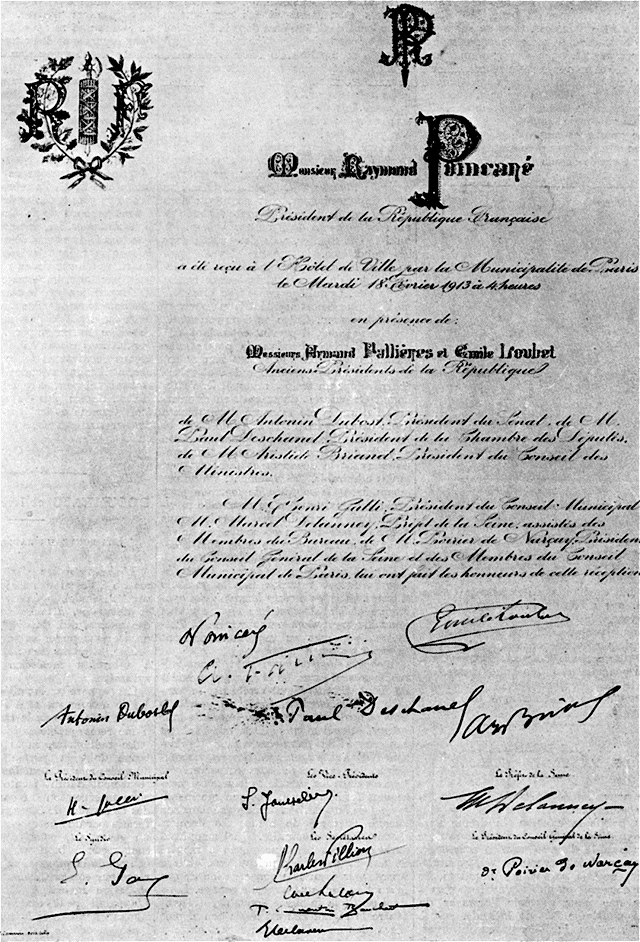 RF
R F
Monsieur Raymond Poincaré
Président de la République Française
a été reçu à l'Hôtel de Ville par la Municipalité de Paris
le Mardi 18 Février 1913 à 4 heures
en présence de:
Messieurs Armand Fallières et Emile Loubet
Anciens Présidents de la République
de M. Antonin Dubost, Président du Sénat, de M.
Paul Deschanel, Président de la Chambre des Députés,
de M. Aristide Briand, Président du Conseil des
Ministres.
M. Henri Galli, Président du Conseil Municipal
M. Marcel Delanney, Préfet de la Seine, assistés des
Membres du Bureau, de M. Poirier de Narçay, Président
du Conseil Général de la Seine et des Membres du Conseil
Municipal de Paris, lui ont fait les honneurs de cette réception
Poincaré
Emile Loubet
A. Fallières
Antonin Dubost
Paul Deschanel
Ar Briand
Le Président du Conseil Municipal
Les Vice-Présidents
Le Préfet de la Seine
H. Galli
M Delanney
Le Syndic
Les Secrétaires
Le Président du Conseil Général de la Seine
E. Gay
Dr Poirier de Narçay